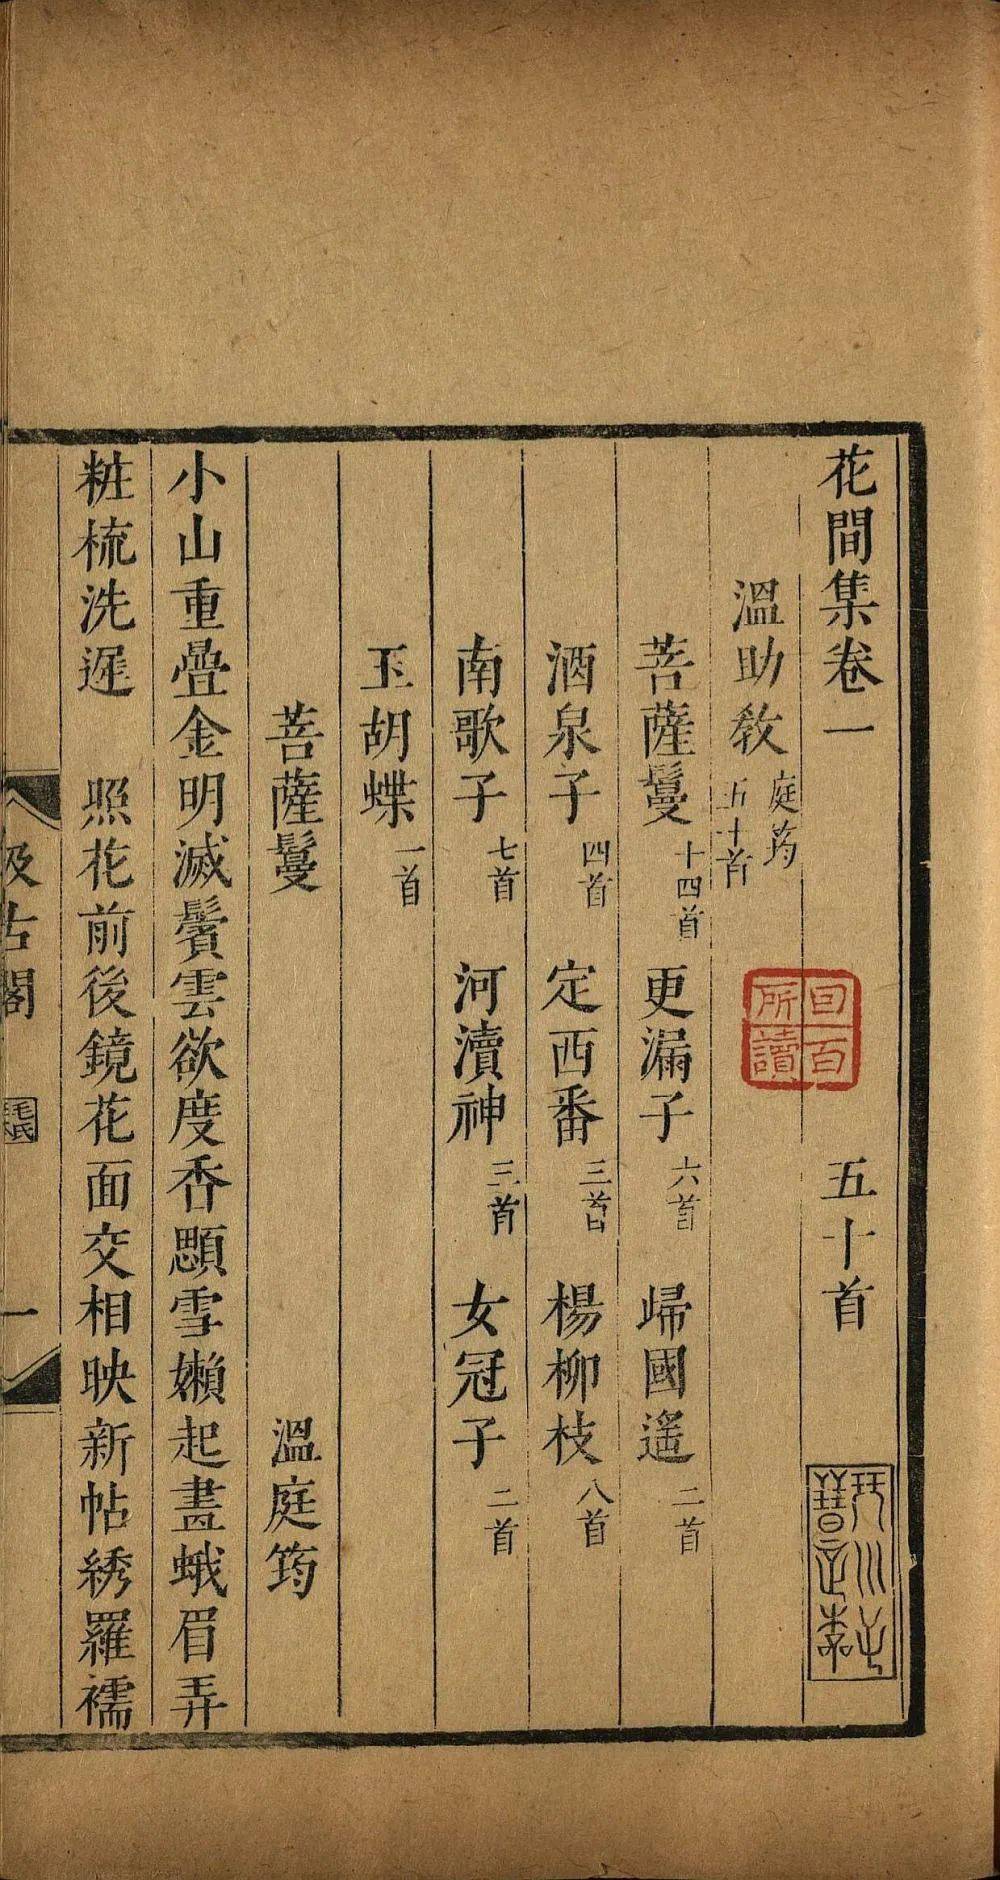 花間集卷一　五十首
溫助敎庭筠五十首
菩薩鬘十四首　更漏子六首　歸國遙二首
酒泉子四首　定西番三首　楊柳枝八首
南歌子七首　河瀆神三首　女冠子二首
玉胡蝶一首
菩薩鬘　溫庭筠
小山重疊金明滅鬢雲欲度香顋雪嬾起畫蛾眉弄
粧梳洗遲　照花前後鏡花面交相映新帖綉羅襦
汲古閣　毛氏　一
所讀